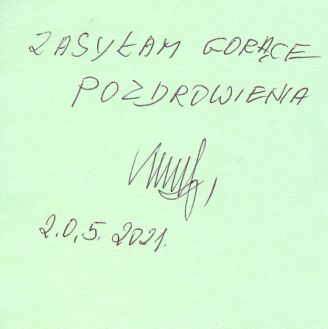 ZASYŁAM GORĄCE
POZDROWIENIA
2.0,5. 2021.